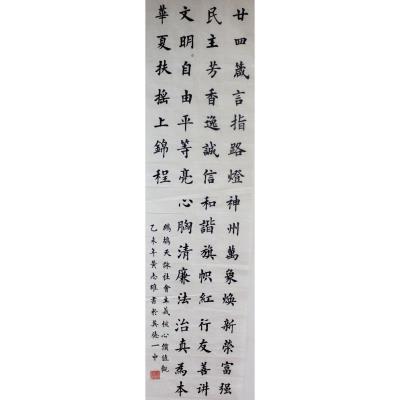 廿四箴言指路燈神州萬象煥新榮富强
民主芳香逸誠信和諧旗幟紅行友善讲
文明自由平等亮心胸清廉法治真為本
華夏扶摇上錦程
鷓鴣天詠社會主義核心價值觀
乙未年黄志雄書於英德一中